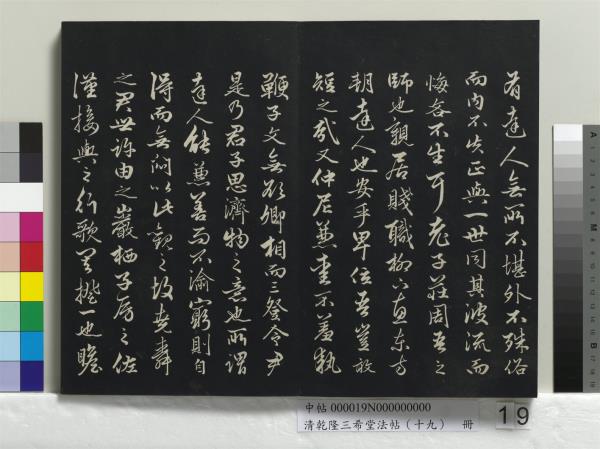 有達人無所不堪外不殊俗
而内不失正與一世同其波流而
悔吝不生耳老子莊周吾之
師也親居賤職柳下惠東方
朔達人也安乎卑位吾豈敢
短之哉又仲尼兼愛不羞執
鞭子文無欲卿相而三登令尹
是乃君子思濟物之意也所謂
達人能兼善而不渝窮則自
得而無悶以此觀之故堯舜
之君世許由之巖栖子房之佐
漢接輿之行歌其揆一也瞻
中帖 000019N000000000
清乾隆三希堂法帖（十九） 冊
19